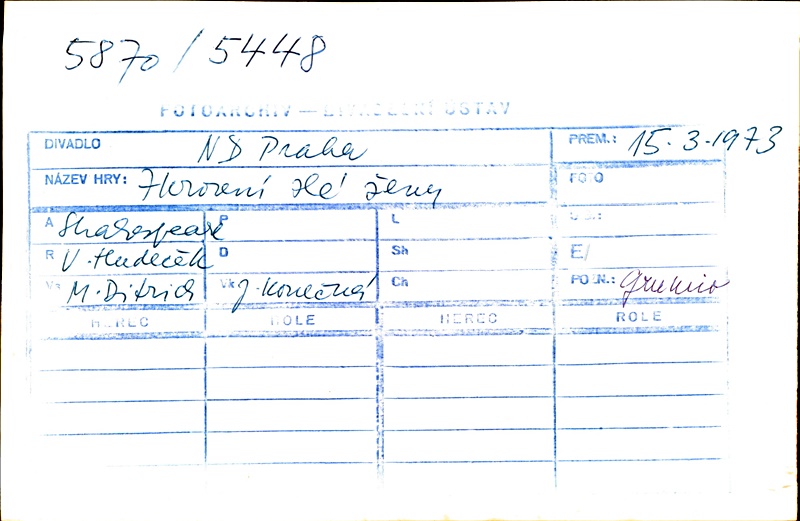 5870 / 5448
FOTOARCHIV — DIVADELNÍ ÚSTAV
DIVADLO ND Praha PREM.: 15.3.1973
NÁZEV HRY: Zkrocení zlé ženy FOTO
A Shakespeare P L
R V. Hudeček D Sh E/
M. Ditrich Vk J. Konečná Ch POZN.:
HEREC ROLE HEREC ROLE